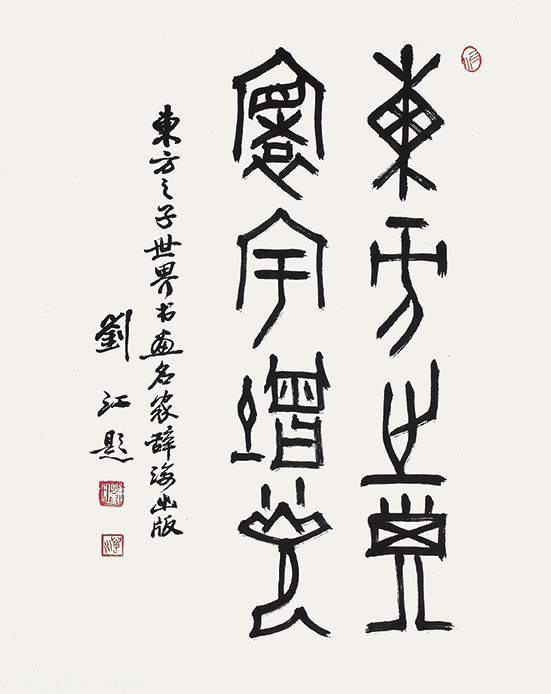 東方之子
寰宇增光
東方之子世界书画名家辭海出版
劉江題